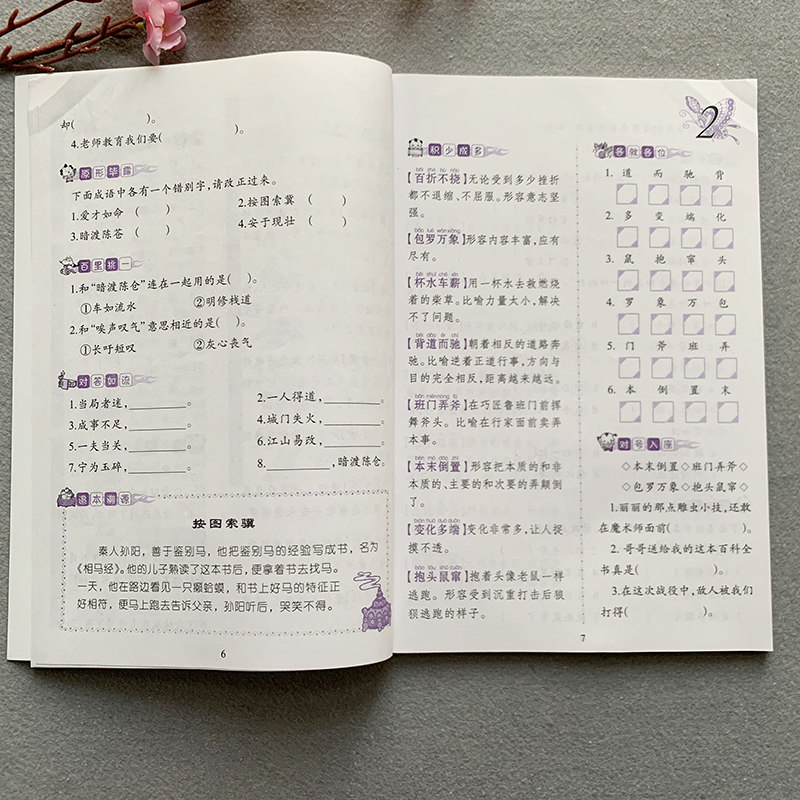 却(　　　)。
4.老师教育我们要(　　　)。
原形毕露
下面成语中各有一个错别字,请改正过来。
1.爱才如命 (　) 2.按图索冀 (　)
3.暗渡陈苍 (　) 4.安于现壮 (　)
百里挑一
1.和“暗渡陈仓”连在一起用的是(　)。
①车如流水 ②明修栈道
2.和“唉声叹气”意思相近的是(　)。
①长吁短叹 ②灰心丧气
对答如流
1.当局者迷,________。 2.一人得道,________。
3.成事不足,________。 4.城门失火,________。
5.一夫当关,________。 6.江山易改,________。
7.宁为玉碎,________。 8.________,暗渡陈仓。
追本溯源
按图索骥
秦人孙阳，善于鉴别马，他把鉴别马的经验写成书，名为
《相马经》。他的儿子熟读了这本书后，便拿着书去找马。
一天，他在路边看见一只癞蛤蟆，和书上好马的特征正
好相符，便马上跑去告诉父亲，孙阳听后，哭笑不得。
6
2
积少成多
bǎi zhé bù náo
【百折不挠】无论受到多少挫折
都不退缩、不屈服。形容意志坚
强。
bāo luó wàn xiàng
【包罗万象】形容内容丰富,应有
尽有。
bēi shuǐ chē xīn
【杯水车薪】用一杯水去救燃烧
着的柴草。比喻力量太小,解决
不了问题。
bèi dào ér chí
【背道而驰】朝着相反的道路奔
驰。比喻逆着正道行事,方向与
目的完全相反,距离越来越远。
bān mén nòng fǔ
【班门弄斧】在巧匠鲁班门前挥
舞斧头。比喻在行家面前卖弄
本事。
běn mò dào zhì
【本末倒置】形容把本质的和非
本质的、主要的和次要的弄颠倒
了。
biàn huà duō duān
【变化多端】变化非常多,让人捉
摸不透。
bào tóu shǔ cuàn
【抱头鼠窜】抱着头像老鼠一样
逃跑。形容受到沉重打击后狼
狈逃跑的样子。
各就各位
1. 道 而 驰 背
2. 多 变 端 化
3. 鼠 抱 窜 头
4. 罗 象 万 包
5. 门 斧 班 弄
6. 本 倒 置 末
对号入座
◇本末倒置◇班门弄斧◇
◇包罗万象◇抱头鼠窜◇
1.丽丽的那点雕虫小技,还敢
在魔术师面前(　　　)。
2.哥哥送给我的这本百科全
书真是(　　　)。
3.在这次战役中,敌人被我们
打得(　　　)。
7